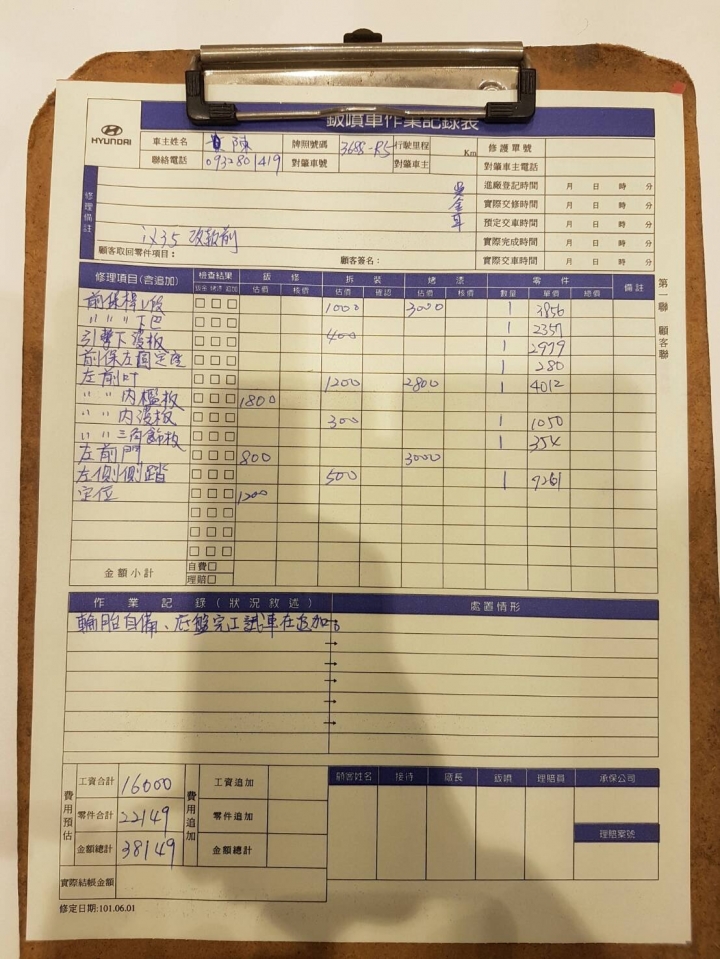 鈑噴車作業記錄表
HYUNDAI
車主姓名 陳 牌照號碼 3688-R5 行駛里程 Km 修護單號
聯絡電話 0932801419 對肇車號 對肇車主 對肇車主電話
修理備註
進廠登記時間 月 日 時 分
實際交修時間 月 日 時 分
預定交車時間 月 日 時 分
實際完成時間 月 日 時 分
實際交車時間 月 日 時 分
ix35 改款前
顧客取回零件項目: 顧客簽名:
第一聯 顧客聯
修理項目(含追加) 檢查結果 鈑修 拆裝 烤漆 零件 備註
鈑金 烤漆 追加 估價 核價 估價 確認 估價 核價 數量 單價 總價
前保桿上段 1000 3000 1 3856
〃 〃 〃 下巴 1 2357
引擎下護板 400 1 2979
前保左固定座 1 280
左前叶 1200 2800 1 4012
〃 〃 內檻板 1800
〃 〃 內護板 300 1 1050
〃 〃 三角飾板 1 354
左前門 800 3000
左側側踏 500 1 7261
定位 1200
金額小計 自費
理賠
作業記錄(狀況敘述) 處置情形
輪胎自備、底盤完工試車在追加。
費用預估
工資合計 16000
零件合計 22149
金額總計 38149
費用追加
工資追加
零件追加
金額總計
實際結帳金額
顧客姓名 接待 廠長 鈑噴 理賠員 承保公司
理賠案號
修定日期:101.06.01